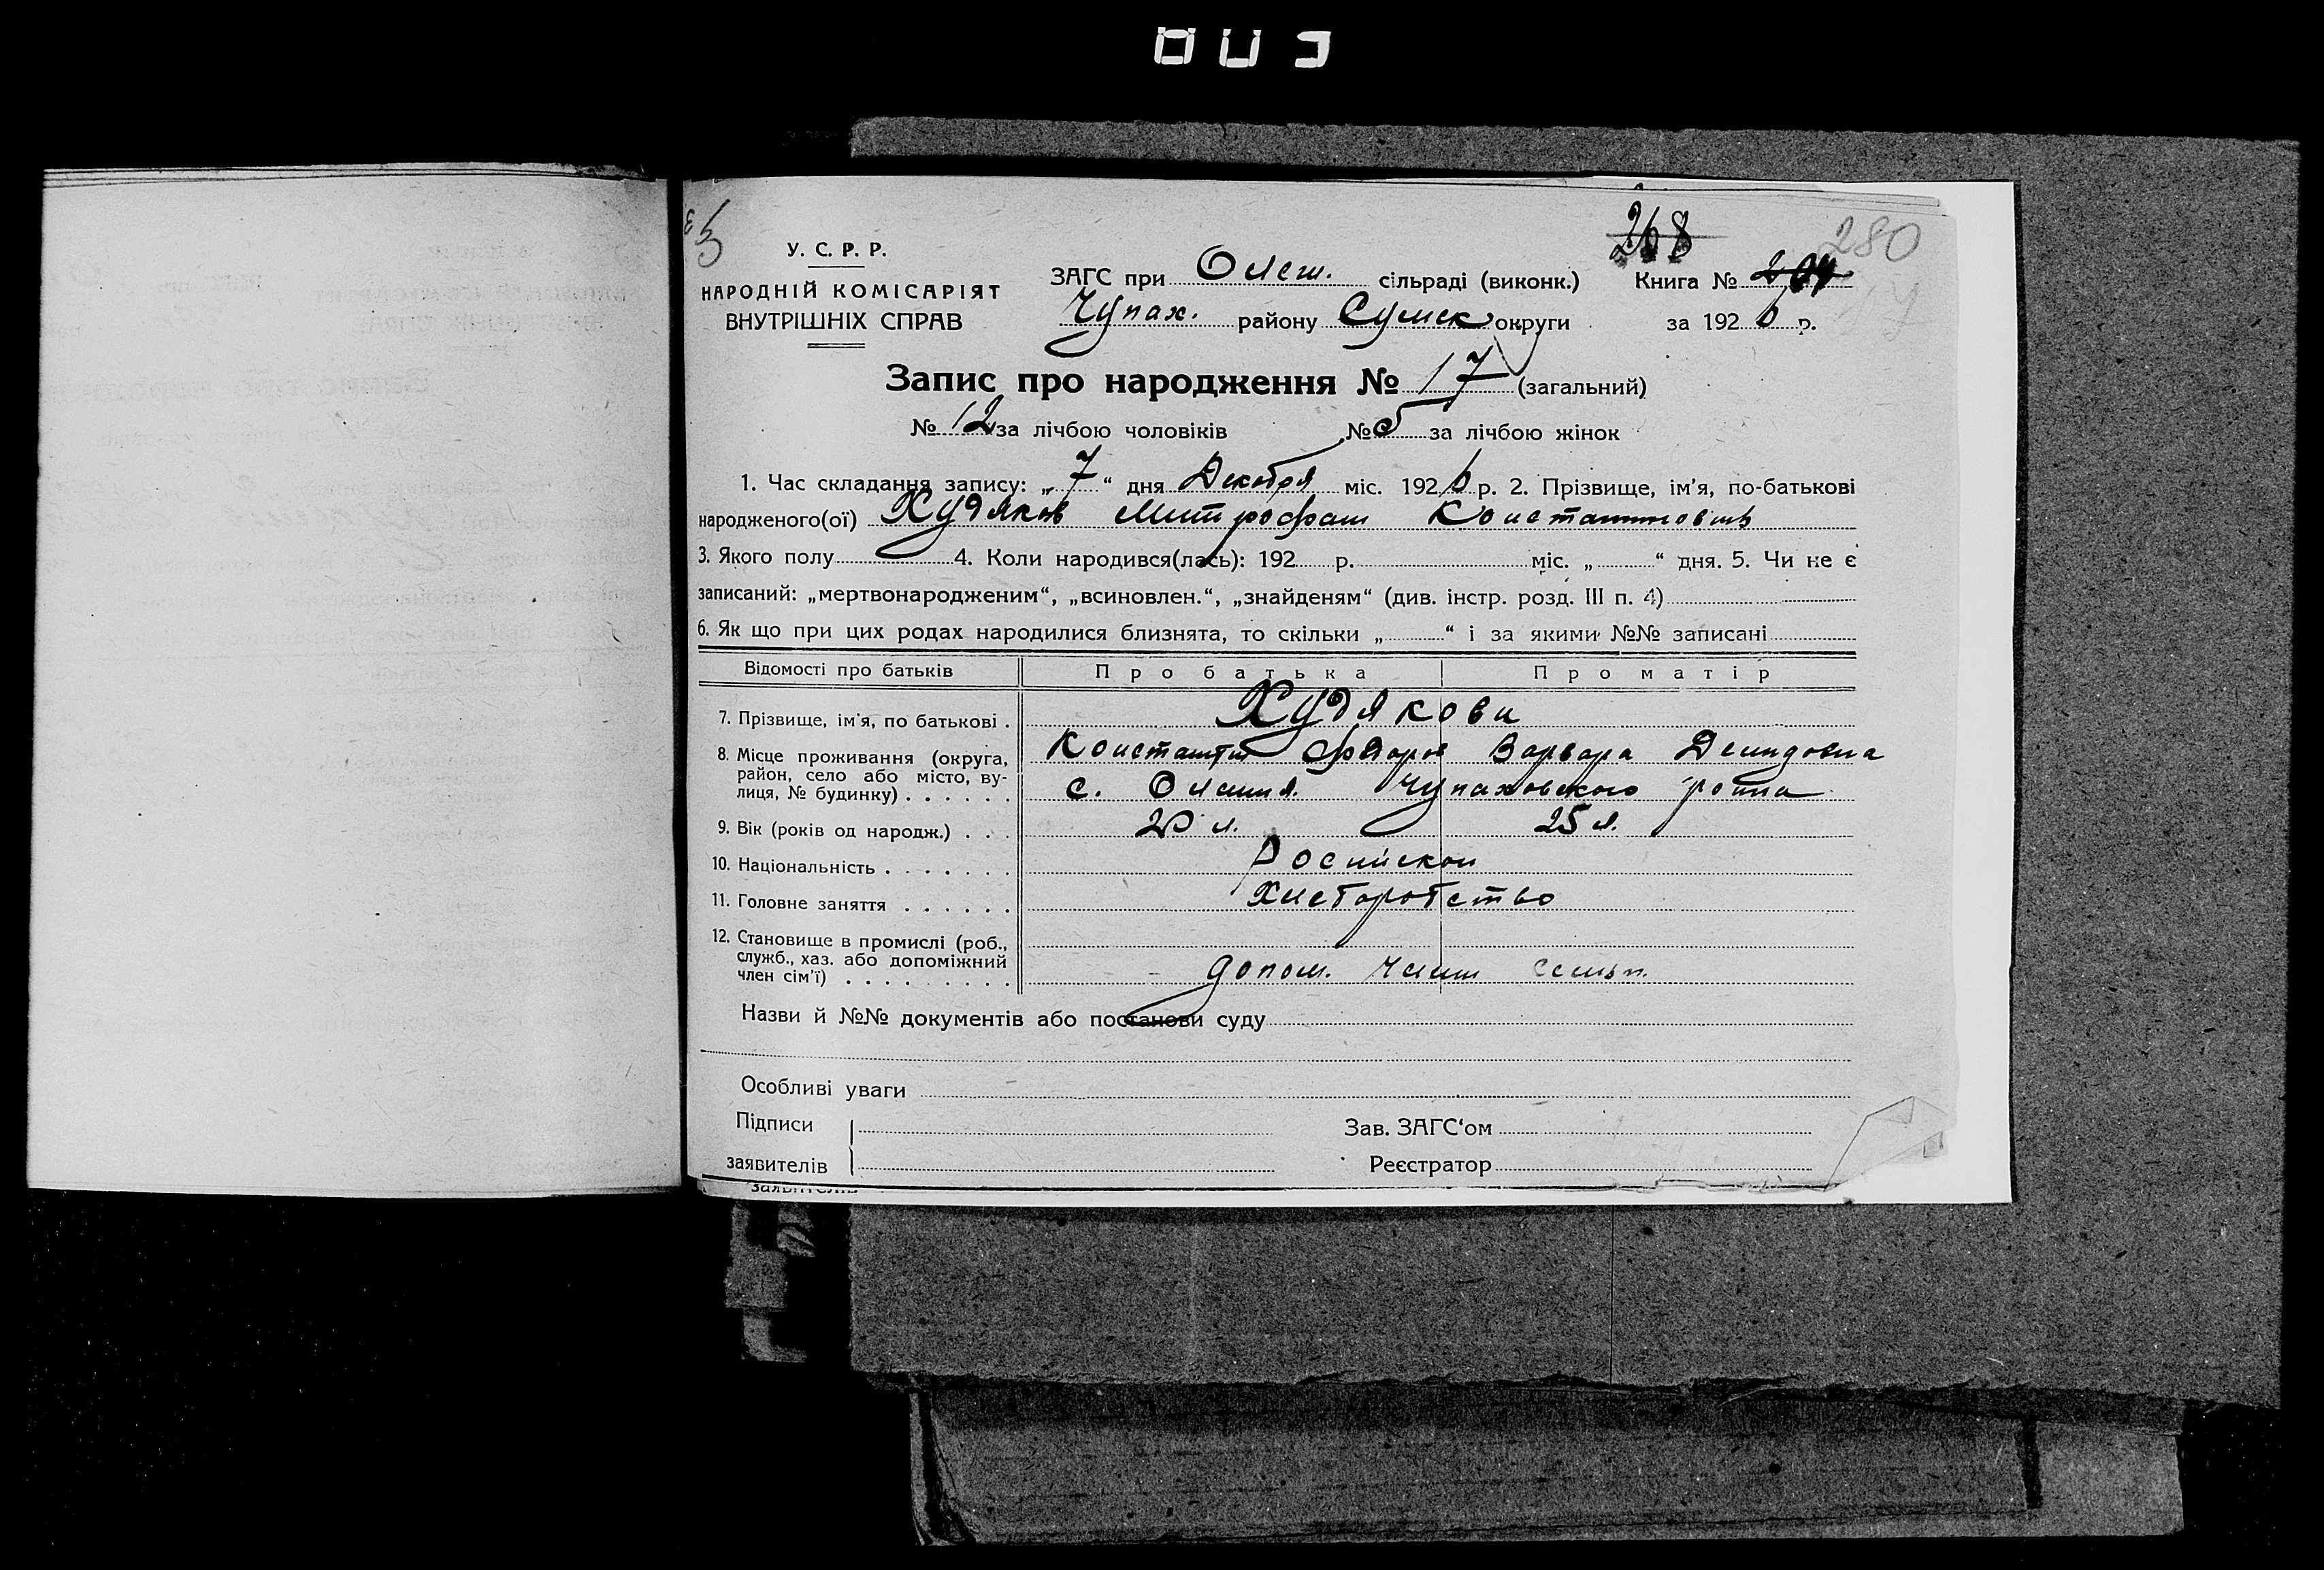 У. С. Р. Р.
НАРОДНІЙ КОМІСАРІЯТ
ВНУТРІШНІХ СПРАВ
268
280
ЗАГС при Олеш. сільраді (виконк.) Книга №
Чупах. району Сумск округи за 1926 р.
Запис про народження № 17 (загальний)
№ 12 за лічбою чоловіків № 5 за лічбою жінок
1. Час складання запису: „7“ дня Декабря міс. 1926 р. 2. Прізвище, ім'я, по-батькові
народженого(ої) Худяков Митрофан Константинович
3. Якого полу 4. Коли народився(лась): 192 р. міс. „ “ дня. 5. Чи не є
записаний: „мертвонародженим“, „всиновлен.“, „знайденям“ (див. інстр. розд. III п. 4)
6. Як що при цих родах народилися близнята, то скільки „ “ і за якими №№ записані
Відомості про батьків Про батька Про матір
7. Прізвище, ім'я, по батькові . Худякови
8. Місце проживання (округа, Константин Федоров Варвара Демидовна
район, село або місто, ву-
лиця, № будинку) . . . . . . с. Олешня Чупаховского
9. Вік (років од народж.) . . . л. 25 л.
10. Національність . . . . . . . Российской
11. Головне заняття . . . . . . Хлеборобство
12. Становище в промислі (роб.,
служб., хаз. або допоміжний
член сім'ї) . . . . . . . . . допом. член семьи
Назви й №№ документів або постанови суду
Особливі уваги
Підписи Зав. ЗАГС'ом
заявителів Реєстратор
заявителів